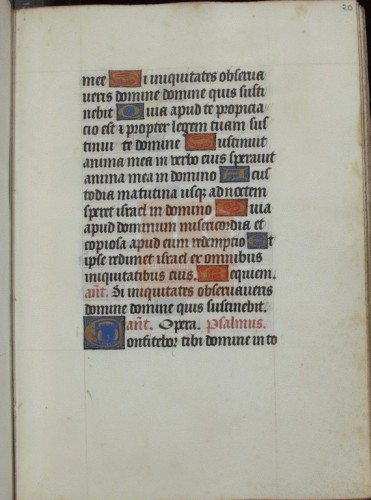 20
mee Si iniquitates observa
veris domine domine quis susti
nebit Quia apud te propicia
cio est et propter legem tuam sus
tinui te domine Sustinuit
anima mea in verbo eius speravit
anima mea in domino A cus
todia matutina usque ad noctem
speret israel in domino Quia
apud dominum misericordia et
copiosa apud eum redemptio Et
ipse redimet israel ex omnibus
iniquitatibus eius. Requiem.
ant. Si iniquitates observaveris
domine domine quis sustinebit.
ant. Opera. Psalmus.
Confitebor tibi domine in to